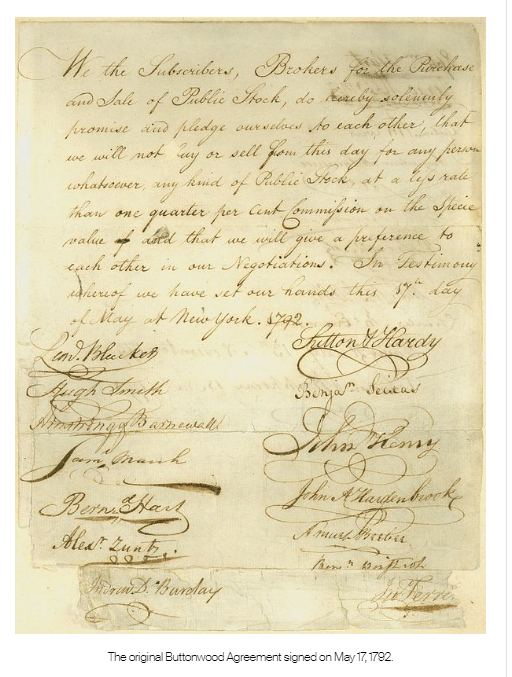 We the Subscribers, Brokers for the Purchase
and Sale of Public Stock, do hereby solemnly
promise and pledge ourselves to each other, that
we will not buy or sell from this day for any person
whatsoever, any kind of Public Stock, at a less rate
than one quarter per Cent Commission on the Specie
value & and that we will give a preference to
each other in our Negotiations. In Testimony
whereof we have set our hands this 17th day
of May at New York. 1792.
Leod. Bleecker
Sutton & Hardy
Hugh Smith
Benjn. Seixas
Armstrong & Barnewall
John Henry
Saml. March
John A Hardenbrook
Bernd. Hart
Amos Beebe
Alexr. Zuntz
Andrew D. Barclay
The original Buttonwood Agreement signed on May 17, 1792.